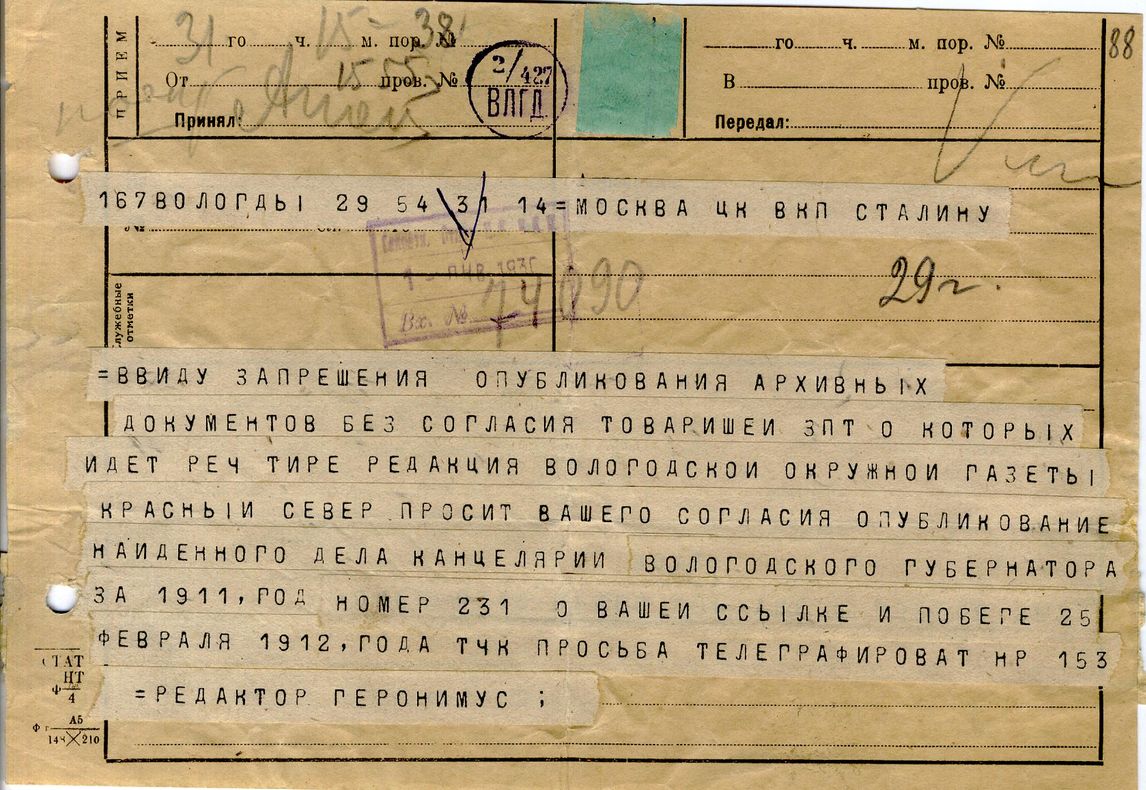 ПРИЕМ
31 го ч. 15 м. пор. № 38
От 15 55 пров. №
Принял:
2/427
ВЛГД
го ч. м. пор. №
В пров. №
Передал:
88
167 ВОЛОГДЫ 29 54 31 14=МОСКВА ЦК ВКП СТАЛИНУ
№
1 - ЯНВ. 193
Вх. №
14090
29 г.
Служебные
отметки
=ВВИДУ ЗАПРЕШЕНИЯ ОПУБЛИКОВАНИЯ АРХИВНЫХ
ДОКУМЕНТОВ БЕЗ СОГЛАСИЯ ТОВАРИШЕИ ЗПТ О КОТОРЫХ
ИДЕТ РЕЧ ТИРЕ РЕДАКЦИЯ ВОЛОГОДСКОИ ОКРУЖНОИ ГАЗЕТЫ
КРАСНЫИ СЕВЕР ПРОСИТ ВАШЕГО СОГЛАСИЯ ОПУБЛИКОВАНИЕ
НАИДЕННОГО ДЕЛА КАНЦЕЛЯРИИ ВОЛОГОДСКОГО ГУБЕРНАТОРА
ЗА 1911, ГОД НОМЕР 231 О ВАШЕИ ССЫЛКЕ И ПОБЕГЕ 25
ФЕВРАЛЯ 1912, ГОДА ТЧК ПРОСЬБА ТЕЛЕГРАФИРОВАТ НР 153
=РЕДАКТОР ГЕРОНИМУС ;
СТАТ
НТ
Ф 4
Ф г А5
148×210